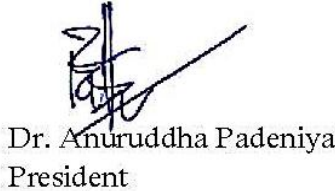 Dr. Anuruddha Padeniya
President